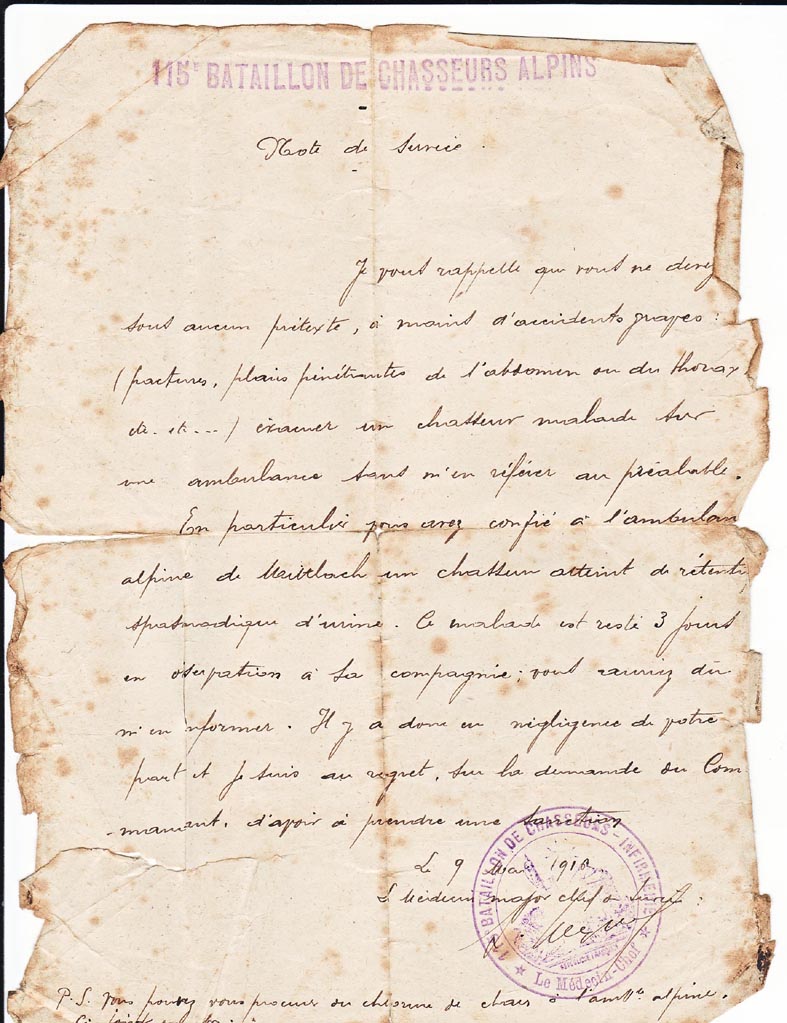 115e BATAILLON DE CHASSEURS ALPINS
Note de Service.
Je vous rappelle que vous ne devez
sous aucun prétexte, à moins d'accidents graves :
(fractures, plaies pénétrantes de l'abdomen ou du thorax
etc. etc...) évacuer un chasseur malade sur
une ambulance sans m'en référer au préalable.
En particulier vous avez confié à l'ambulan
alpine de Mittlach un chasseur atteint de rétenti
spasmodique d'urine. Ce malade est resté 3 jours
en observation à sa compagnie ; vous auriez dû
m'en informer. Il y a donc eu négligence de votre
part et je suis au regret, sur la demande du Com
-mandant, d'avoir à prendre une sanction
Le 9 191
Le Médecin major chef de Service :
BATAILLON DE CHASSEURS - INFIRMERIE
★ Le Médecin-Chef ★
P.S. Vous pouvez vous procurer du chlorure de chaux à l'amb^ce alpine.